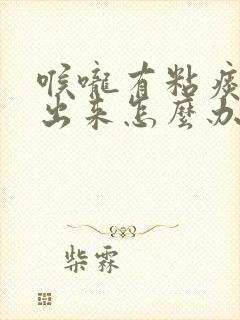 喉嚨有粘痰
出来怎麼办
柴霖